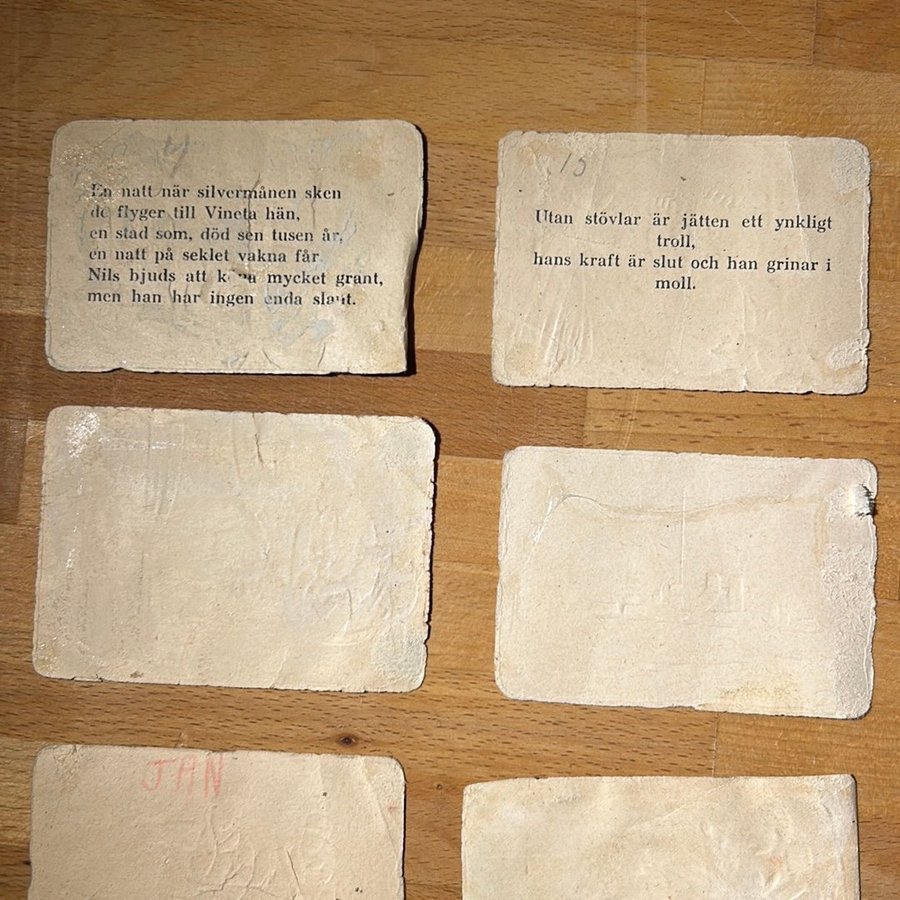 4
En natt när silvermånen sken
de flyger till Vineta hän,
en stad som, död sen tusen år,
en natt på seklet vakna får.
Nils bjuds att köpa mycket grant,
men han har ingen enda slant.
15
Utan stövlar är jätten ett ynkligt
troll,
hans kraft är slut och han grinar i
moll.
JAN